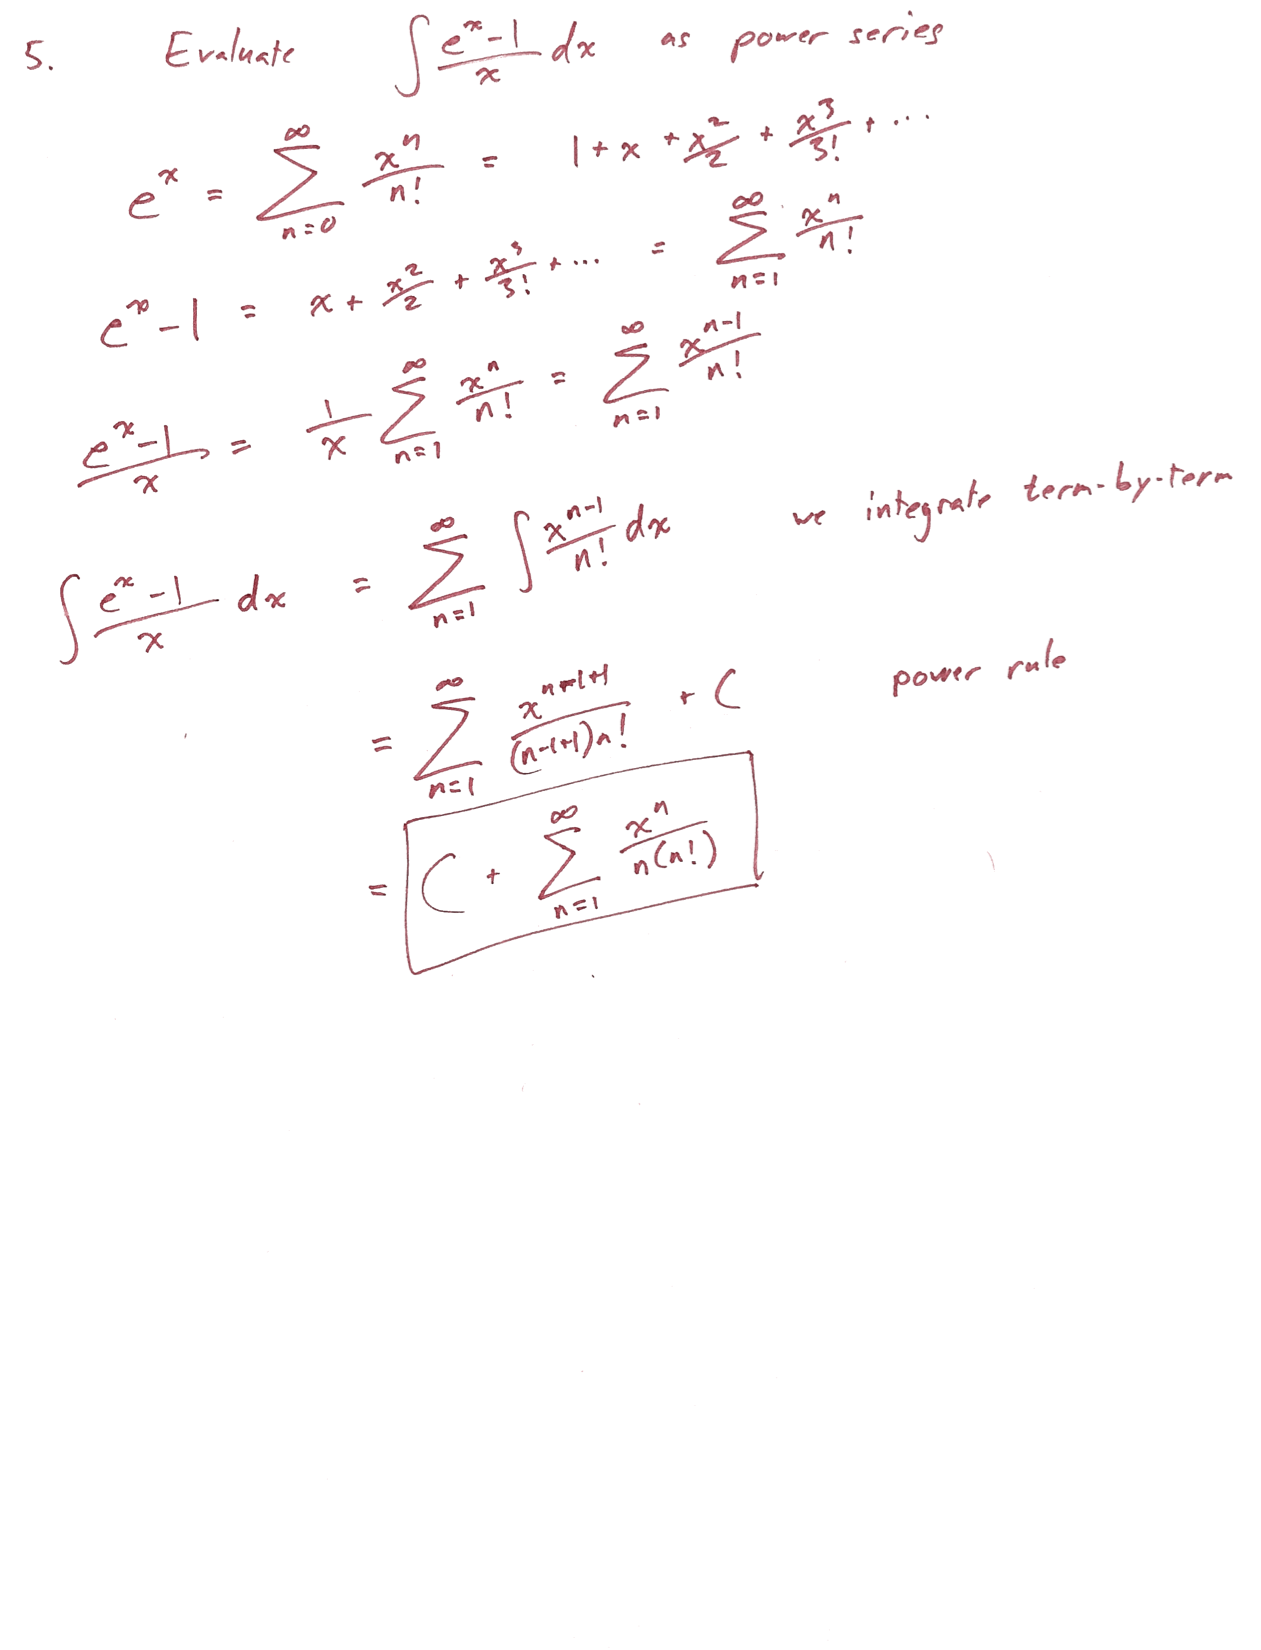 5. Evaluate ∫ (e^x - 1)/x dx as power series
e^x = ∑_{n=0}^{∞} x^n/n! = 1 + x + x^2/2 + x^3/3! + ...
e^x - 1 = x + x^2/2 + x^3/3! + ... = ∑_{n=1}^{∞} x^n/n!
(e^x - 1)/x = 1/x ∑_{n=1}^{∞} x^n/n! = ∑_{n=1}^{∞} x^{n-1}/n!
∫ (e^x - 1)/x dx = ∑_{n=1}^{∞} ∫ x^{n-1}/n! dx we integrate term-by-term
= ∑_{n=1}^{∞} x^{n-1+1}/((n-1+1)n!) + C power rule
= C + ∑_{n=1}^{∞} x^n/(n(n!))